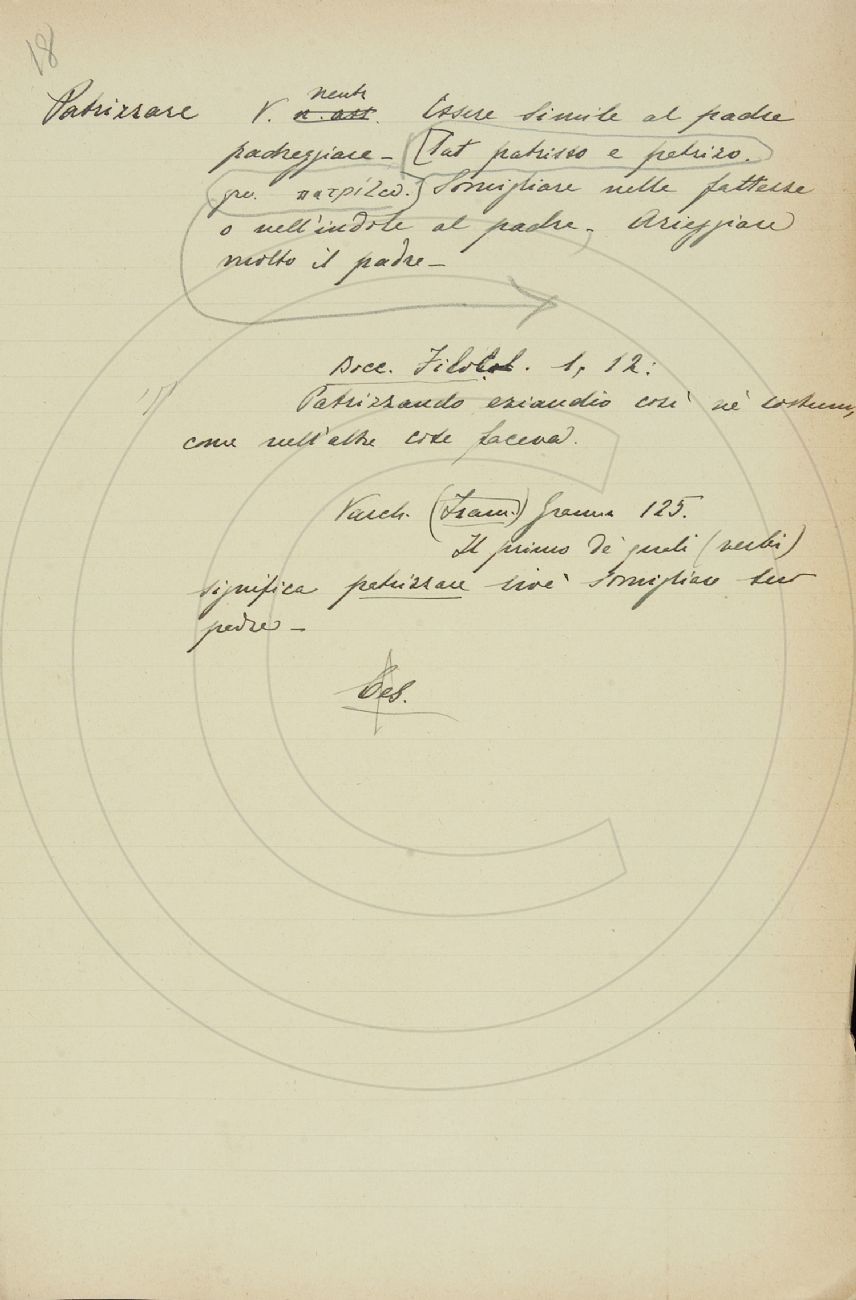 18
Patrizzare V. neutr n. ass. Essere simile al padre
padreggiare – [Lat patrisso e patrizo.
gre. πατρίζω.] Somigliare nelle fattezze
o nell'indole al padre. Arieggiare
molto il padre –
Bocc. Filocol. 1, 12:
Patrizzando eziandio così ne' costumi,
come nell'altre cose faceva.
Varch. (Gram.) Gramm 125.
Il primo de' quali (verbi)
significa patrizzare cioè somigliare suo
padre –